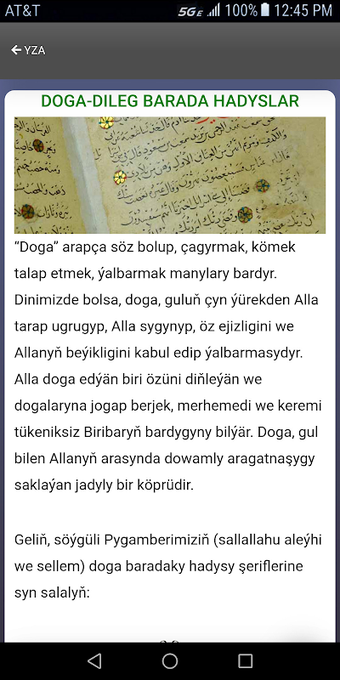 AT&T 5G E 100% 12:45 PM
YZA
DOGA-DILEG BARADA HADYSLAR
“Doga” arapça söz bolup, çagyrmak, kömek
talap etmek, ýalbarmak manylary bardyr.
Dinimizde bolsa, doga, guluň çyn ýürekden Alla
tarap ugrugyp, Alla sygynyp, öz ejizligini we
Allanyň beýikligini kabul edip ýalbarmasydyr.
Alla doga edýän biri özüni diňleýän we
dogalaryna jogap berjek, merhemedi we keremi
tükeniksiz Biribaryň bardygyny bilýär. Doga, gul
bilen Allanyň arasynda dowamly aragatnaşygy
saklaýan jadyly bir köprüdir.
Geliň, söýgüli Pygamberimiziň (sallallahu aleýhi
we sellem) doga baradaky hadysy şeriflerine
syn salalyň: